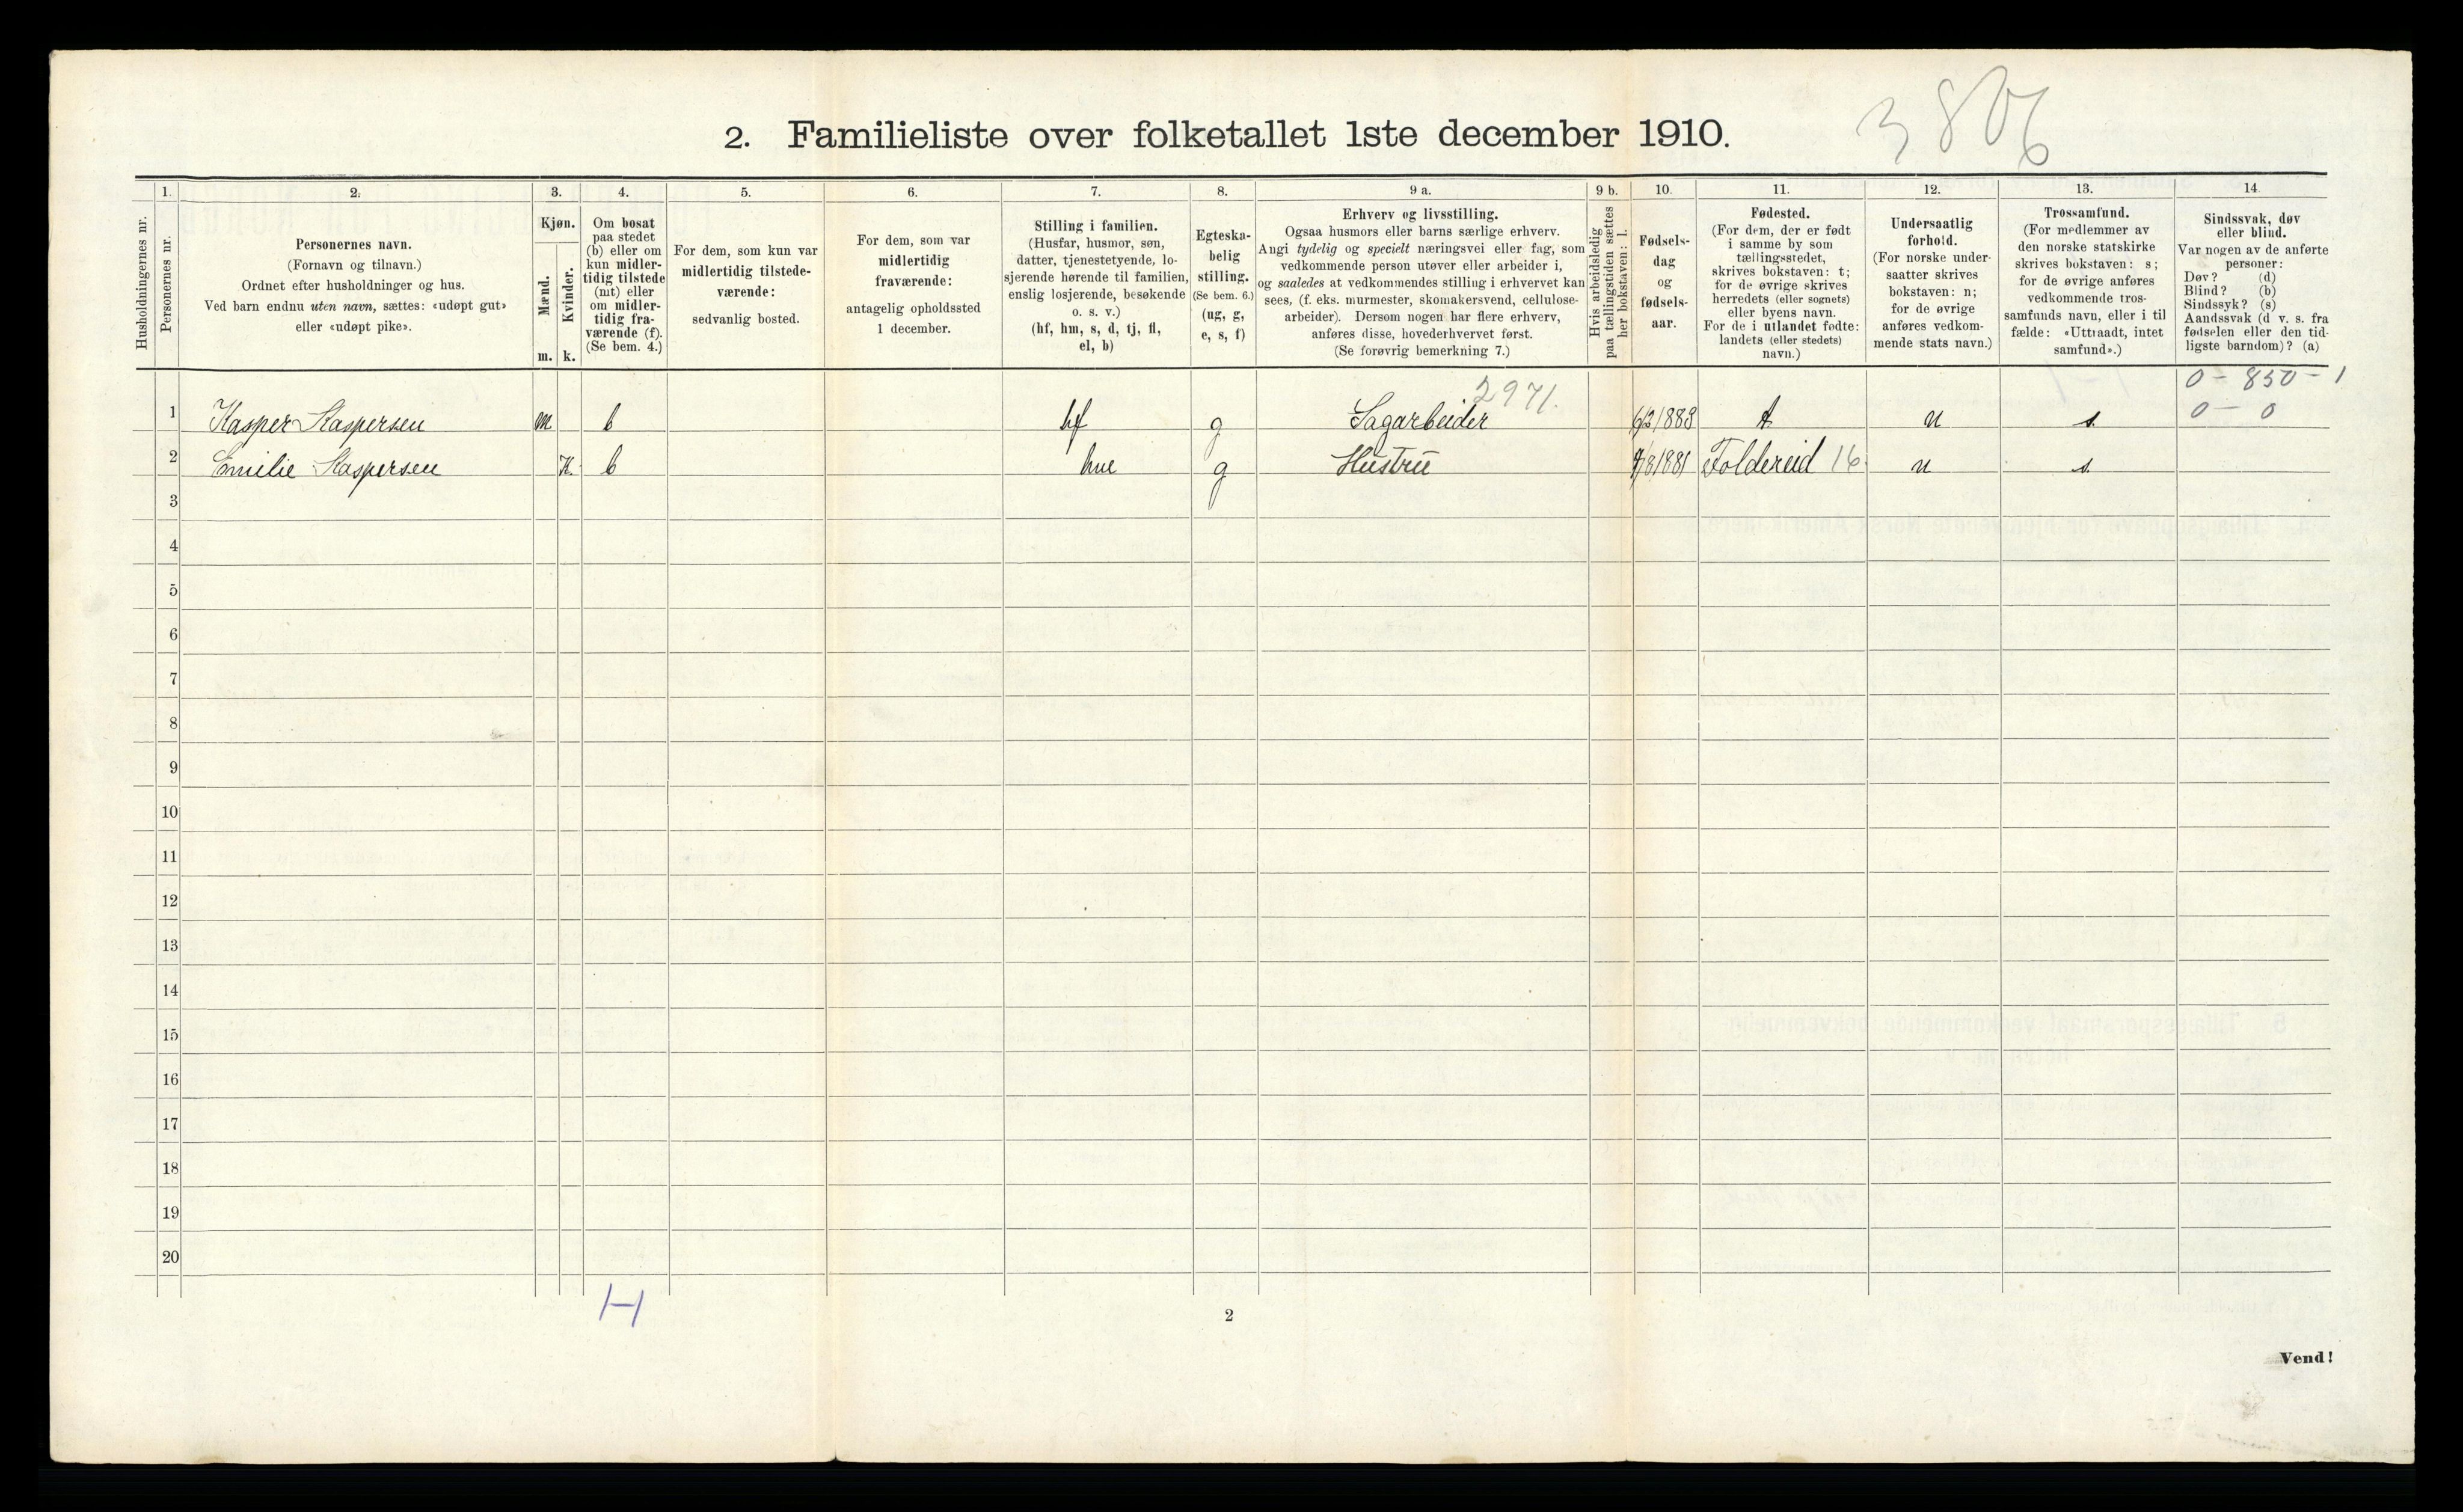 3806
2. Familieliste over folketallet 1ste december 1910.
Husholdningernes nr.
1.
Personernes nr.
2.
Personernes navn.
(Fornavn og tilnavn.)
Ordnet efter husholdninger og hus.
Ved barn endnu uten navn, sættes: «udøpt gut»
eller «udøpt pike».
3.
Kjøn.
Mænd.
m.
Kvinder.
k.
4.
Om bosat
paa stedet
(b) eller om
kun midler-
tidig tilstede
(mt) eller
om midler-
tidig fra-
værende (f).
(Se bem. 4.)
5.
For dem, som kun var
midlertidig tilstede-
værende:
sedvanlig bosted.
6.
For dem, som var
midlertidig
fraværende:
antagelig opholdssted
1 december.
7.
Stilling i familien.
(Husfar, husmor, søn,
datter, tjenestetyende, lo-
sjerende hørende til familien,
enslig losjerende, besøkende
o. s. v.)
(hf, hm, s, d, tj, fl,
el, b)
8.
Egteska-
belig
stilling.
(Se bem. 6.)
(ug, g,
e, s, f)
9 a.
Erhverv og livsstilling.
Ogsaa husmors eller barns særlige erhverv.
Angi tydelig og specielt næringsvei eller fag, som
vedkommende person utøver eller arbeider i,
og saaledes at vedkommendes stilling i erhvervet kan
sees, (f. eks. murmester, skomakersvend, cellulose-
arbeider). Dersom nogen har flere erhverv,
anføres disse, hovederhvervet først.
(Se forøvrig bemerkning 7.)
9 b.
Hvis arbeidsledig
paa tællingstiden sættes
her bokstaven: l.
10.
Fødsels-
dag
og
fødsels-
aar.
11.
Fødested.
(For dem, der er født
i samme by som
tællingsstedet,
skrives bokstaven: t;
for de øvrige skrives
herredets (eller sognets)
eller byens navn.
For de i utlandet fødte:
landets (eller stedets)
navn.)
12.
Undersaatlig
forhold.
(For norske under-
saatter skrives
bokstaven: n;
for de øvrige
anføres vedkom-
mende stats navn.)
13.
Trossamfund.
(For medlemmer av
den norske statskirke
skrives bokstaven: s;
for de øvrige anføres
vedkommende tros-
samfunds navn, eller i til
fælde: «Uttraadt, intet
samfund».)
14
Sindssvak, døv
eller blind.
Var nogen av de anførte
personer:
Døv? (d)
Blind? (b)
Sindssyk? (s)
Aandssvak (d v. s. fra
fødselen eller den tid-
ligste barndom)? (a)
2971.
0 - 850 - 1
0 - 0
1 Kasper Kaspersen m b hf g Sagarbeider 6/2 1883 t n s.
2 Emilie Kaspersen K. b hue g Hustru 1881 Foldereid 16 n s.
3
4
5
6
7
8
9
10
11
12
13
14
15
16
17
18
19
20
H
2
Vend!